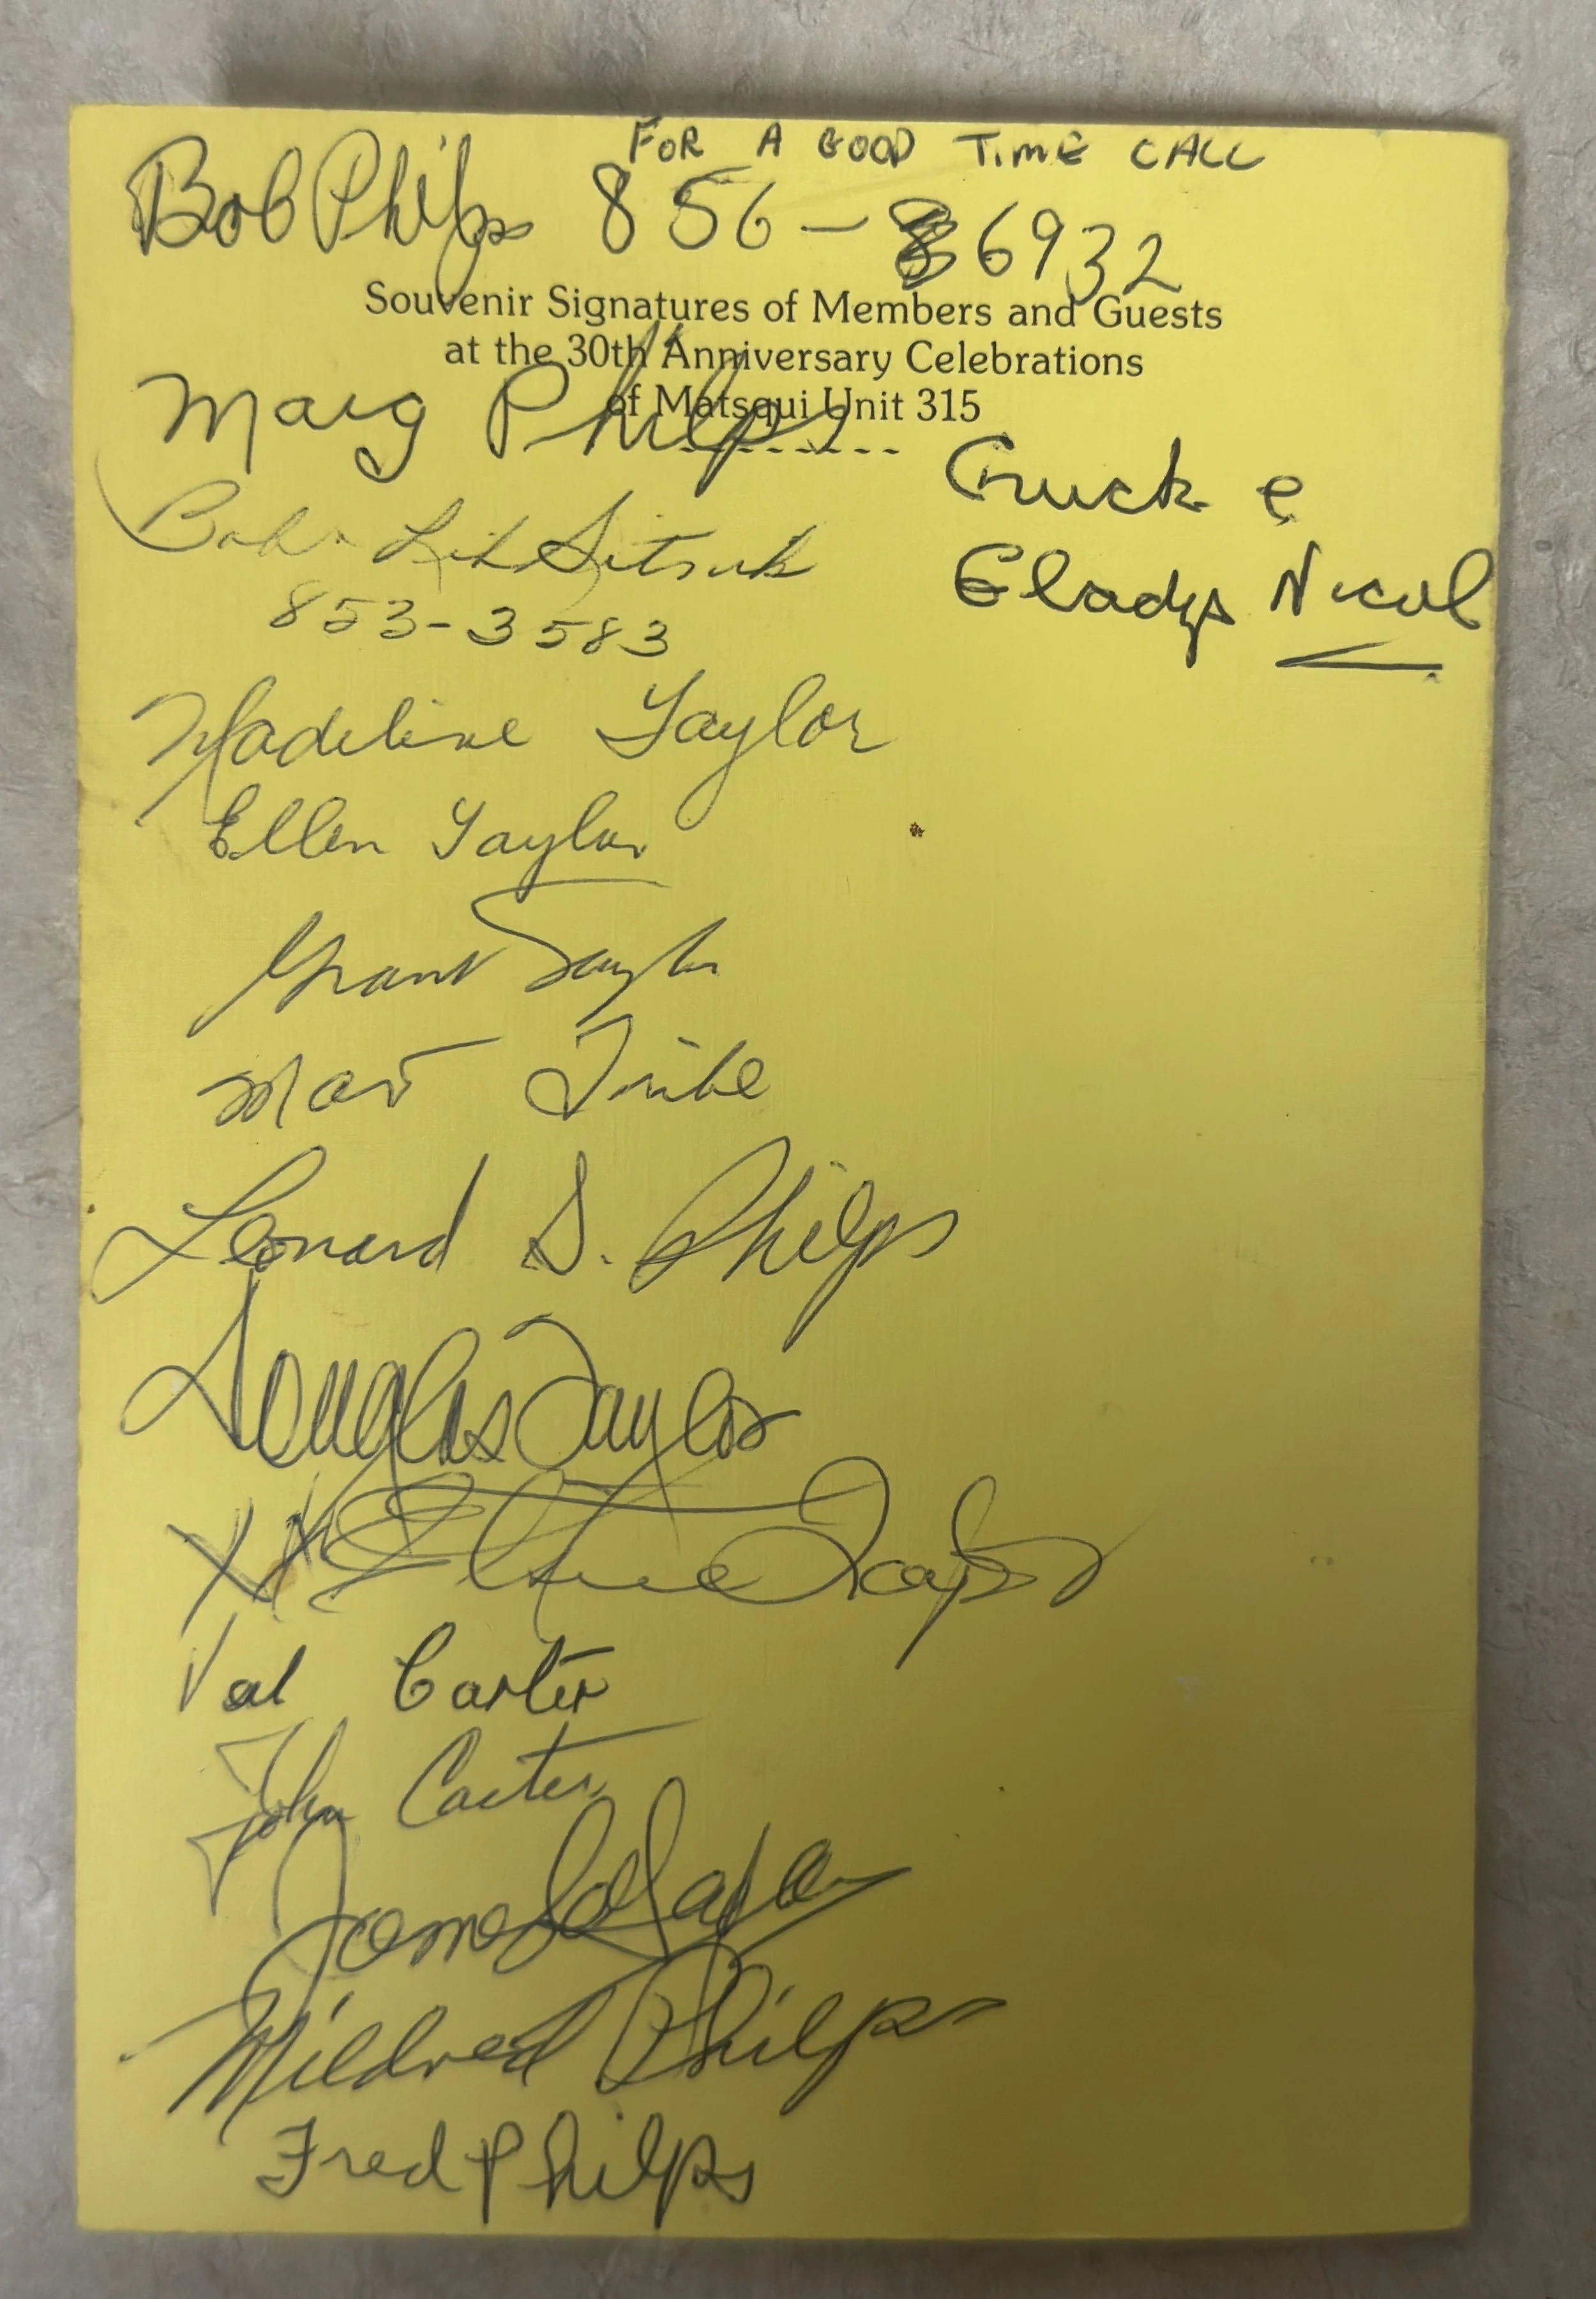 FOR A GOOD TIME CALL
Bob Philps 856-86932
Souvenir Signatures of Members and Guests
at the 30th Anniversary Celebrations
of Matsqui Unit 315
--------
Marg Philps
Chuck &
Gladys Nicol
853-3583
Madeline Taylor
Ellen Taylor
Grant Taylor
Tribe
Leonard S. Philps
Douglas Taylor
Taylor
Val Carter
John Carter
James
Mildred Philps
Fred Philps